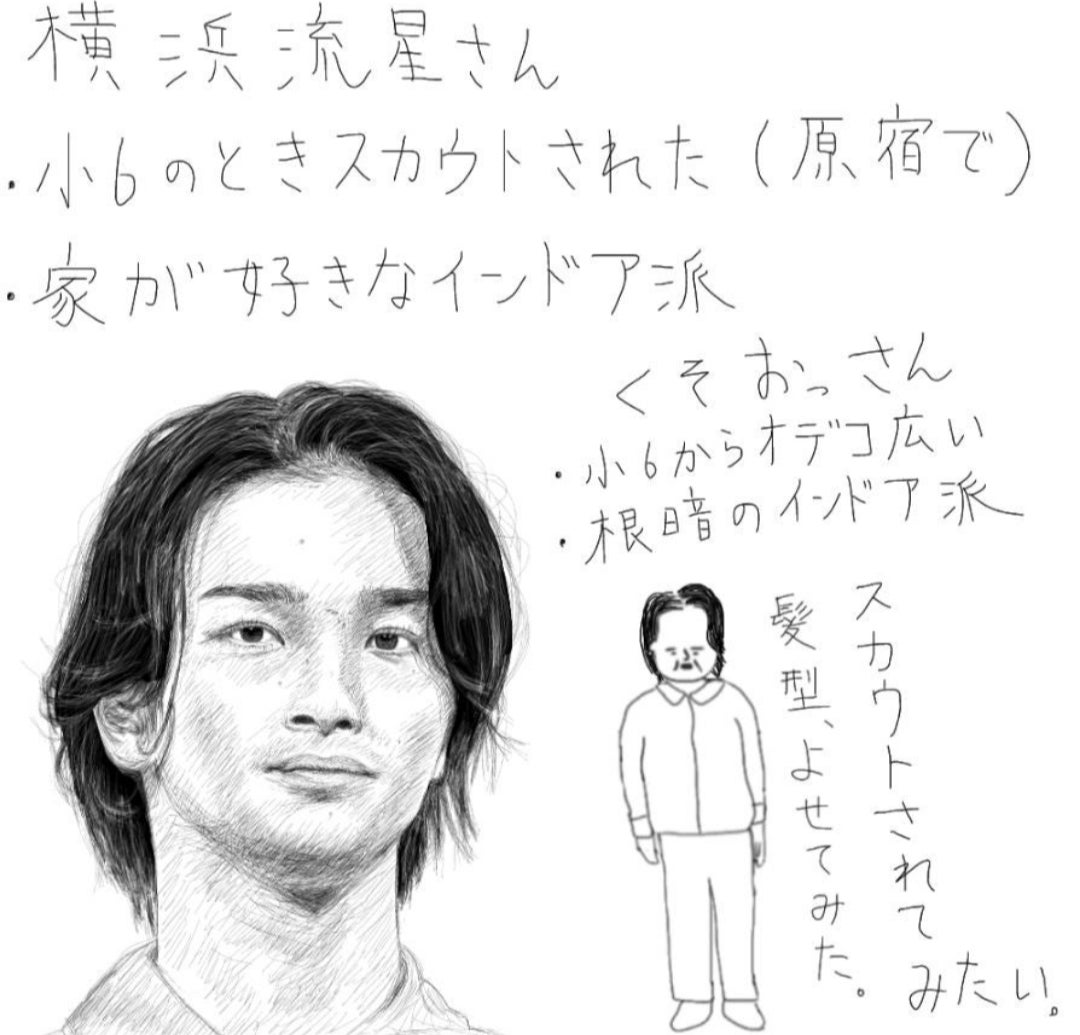 横浜流星さん
・小6のときスカウトされた(原宿で)
・家が好きなインドア派
くそおっさん
・小6からオデコ広い
・根暗のインドア派
スカウトされてみたい。
髪型、よせてみた。